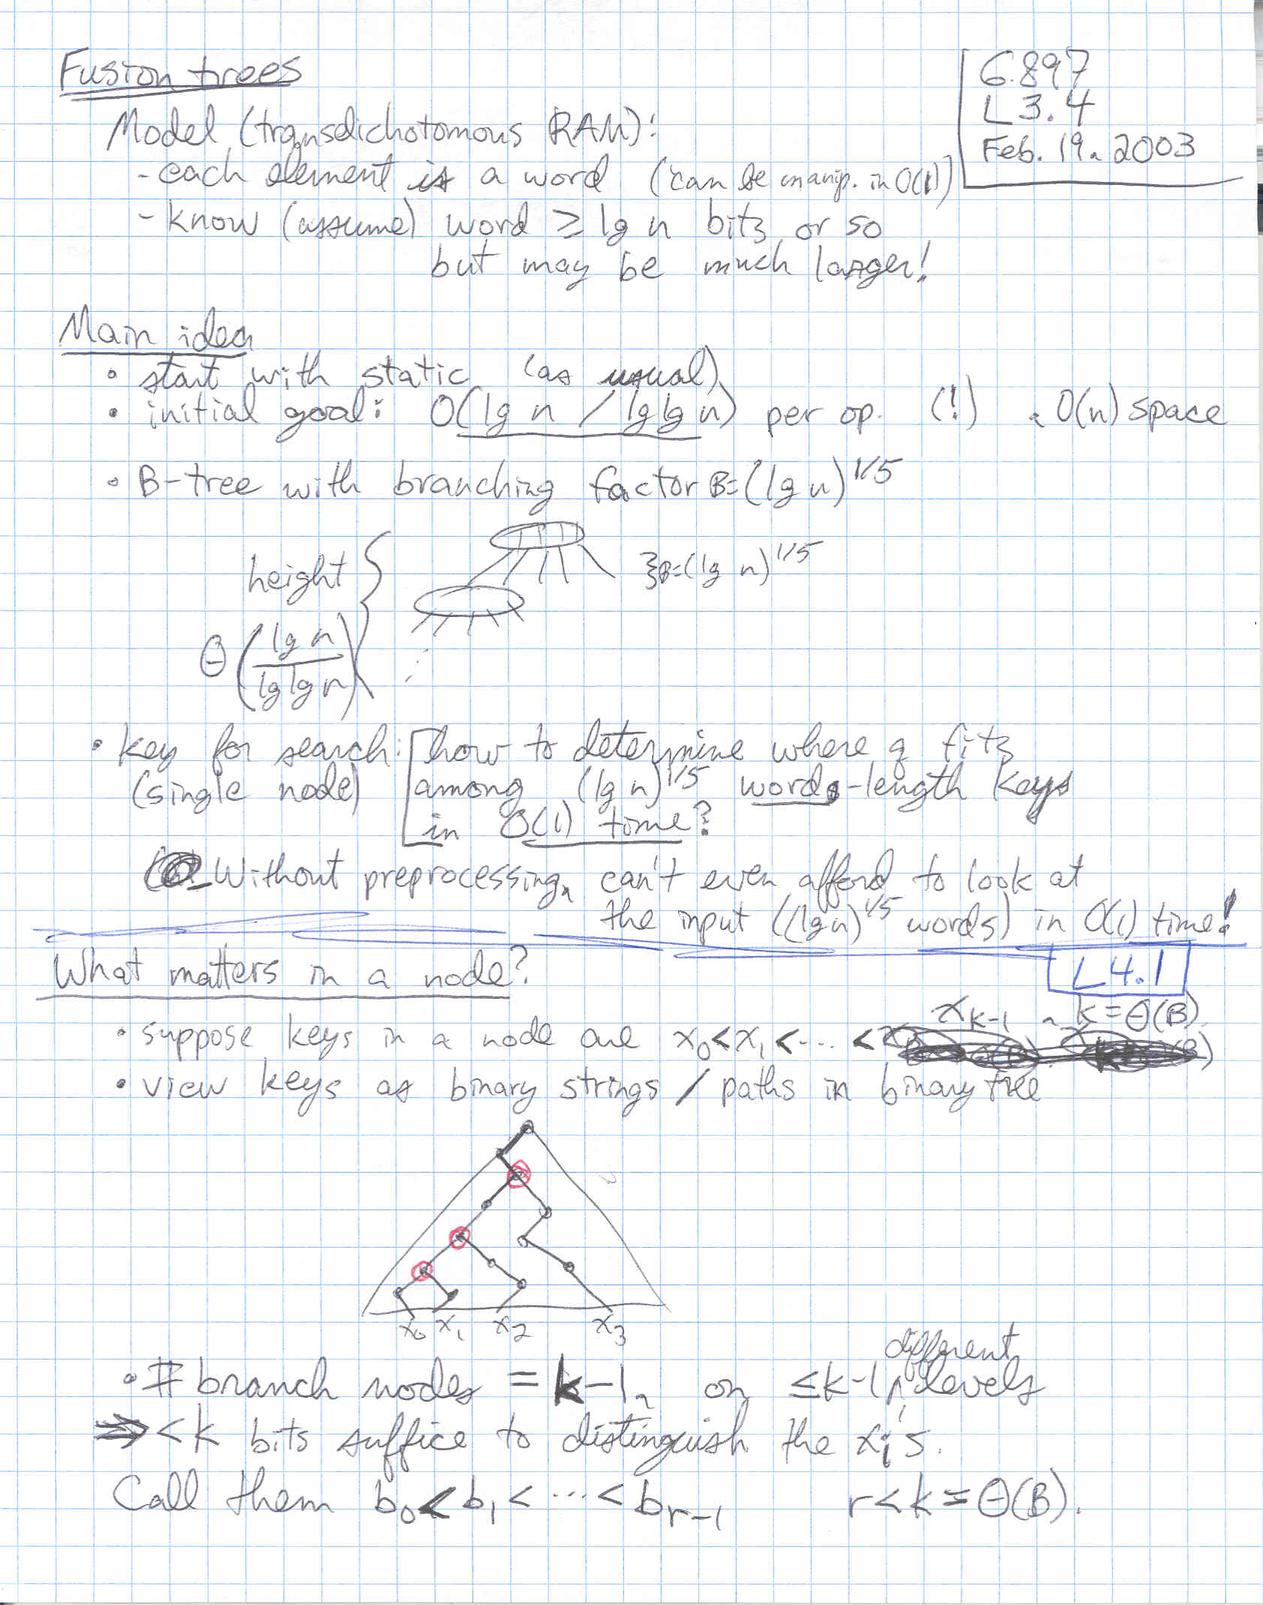 Fusion trees
6.897
L3.4
Feb. 19, 2003
Model (transdichotomous RAM):
- each element is a word (can be manip. in O(1))
- know (assume) word ≥ lg n bits or so
but may be much larger!
Main idea
• start with static (as usual)
• initial goal: O(lg n / lglg n) per op. (!) , O(n) space
• B-tree with branching factor B=(lg n)^1/5
height
}B=(lg n)^1/5
Θ(lg n / lglg n)
• key for search: how to determine where q fits
(single node) among (lg n)^1/5 word-length keys
in O(1) time?
- Without preprocessing, can't even afford to look at
the input ((lg n)^1/5 words) in O(1) time!
What matters in a node?
L4.1
• suppose keys in a node are x₀<x₁<⋯<x_{k-1}, k=Θ(B)
• view keys as binary strings / paths in binary tree
x₀ x₁ x₂ x₃
• # branch nodes = k-1, on ≤k-1 different levels
⇒ <k bits suffice to distinguish the xᵢ's.
Call them b₀<b₁<⋯<b_{r-1} r<k=Θ(B).